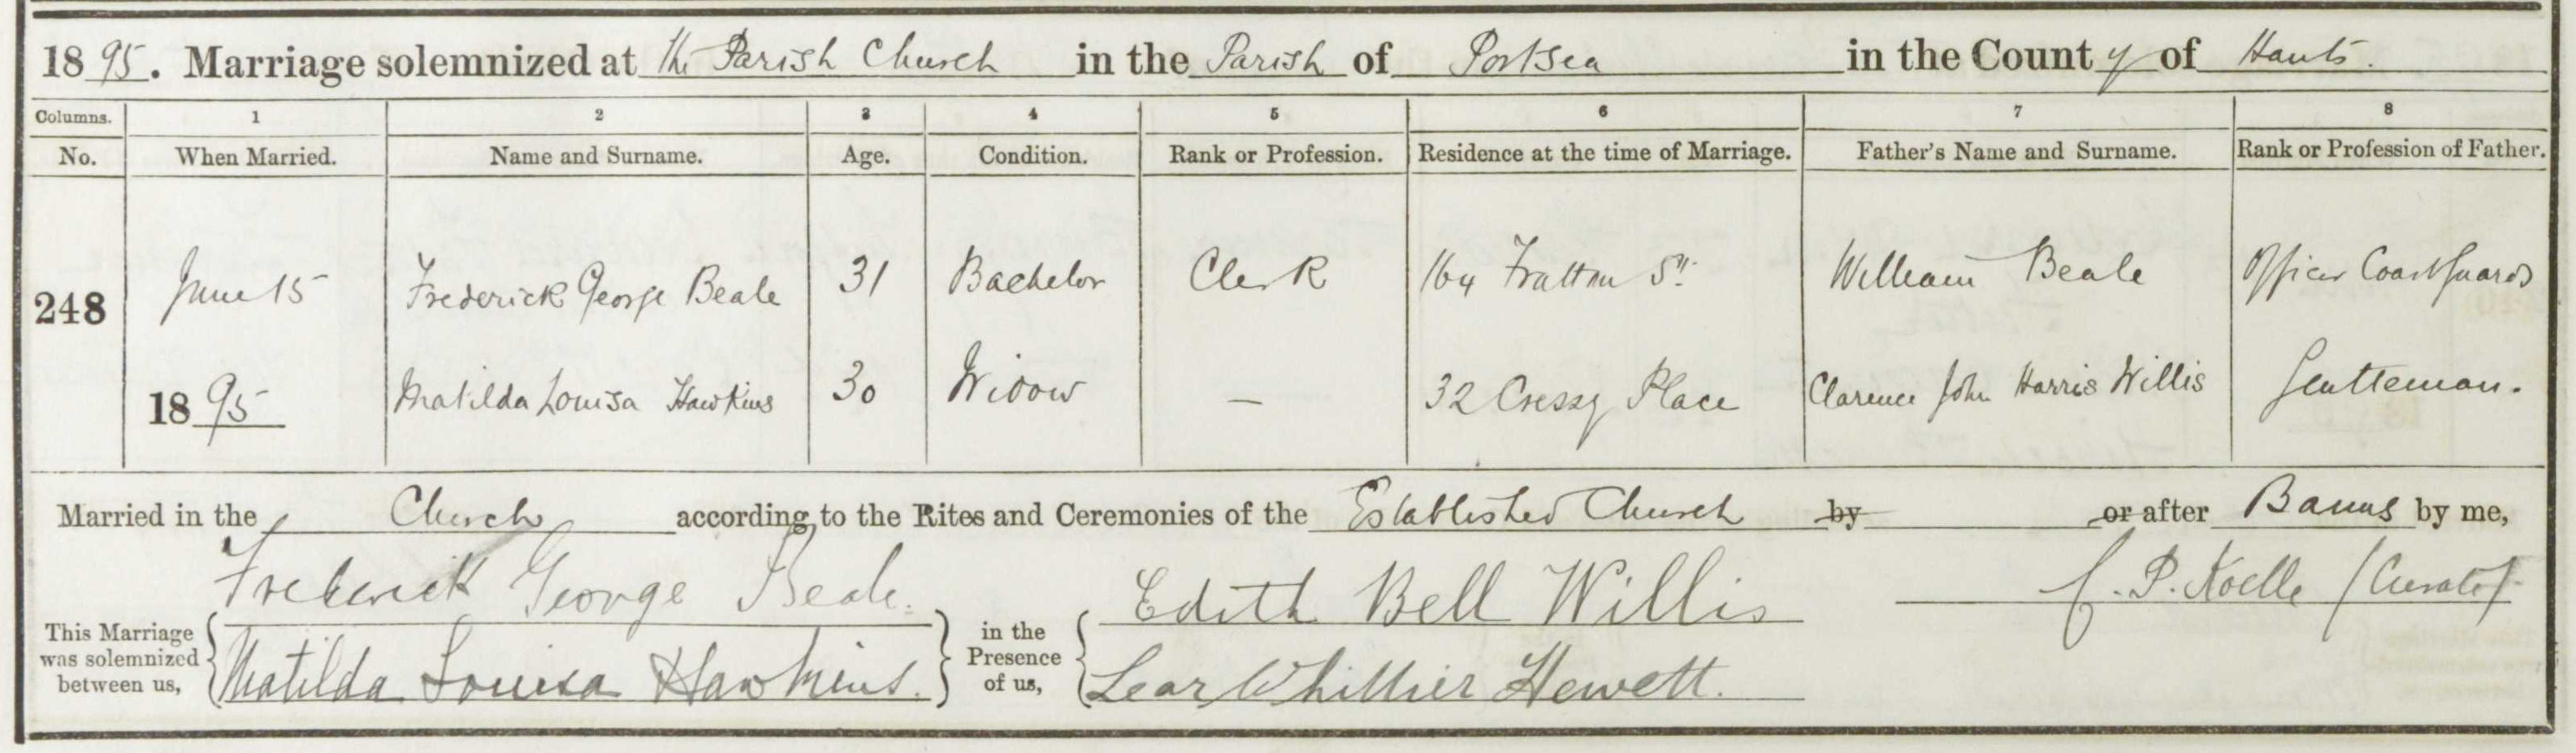 1895. Marriage solemnized at the Parish Church in the Parish of Portsea in the County of Hants.
Columns. 1 2 3 4 5 6 7 8
No. When Married. Name and Surname. Age. Condition. Rank or Profession. Residence at the time of Marriage. Father's Name and Surname. Rank or Profession of Father.
248 June 15 Frederick George Beale 31 Bachelor Clerk 164 Fratton St. William Beale Officer Coast Guards
1895 Matilda Louisa Hawkins 30 Widow — 32 Cressy Place Clarence John Harris Willis Gentleman.
Married in the Church according to the Rites and Ceremonies of the Established Church by or after Banns by me,
Frederick George Beale. Edith Bell Willis C. P. Koelle (Curate)
This Marriage was solemnized between us, in the Presence of us,
Matilda Louisa Hawkins. Lear Whittier Hewett.